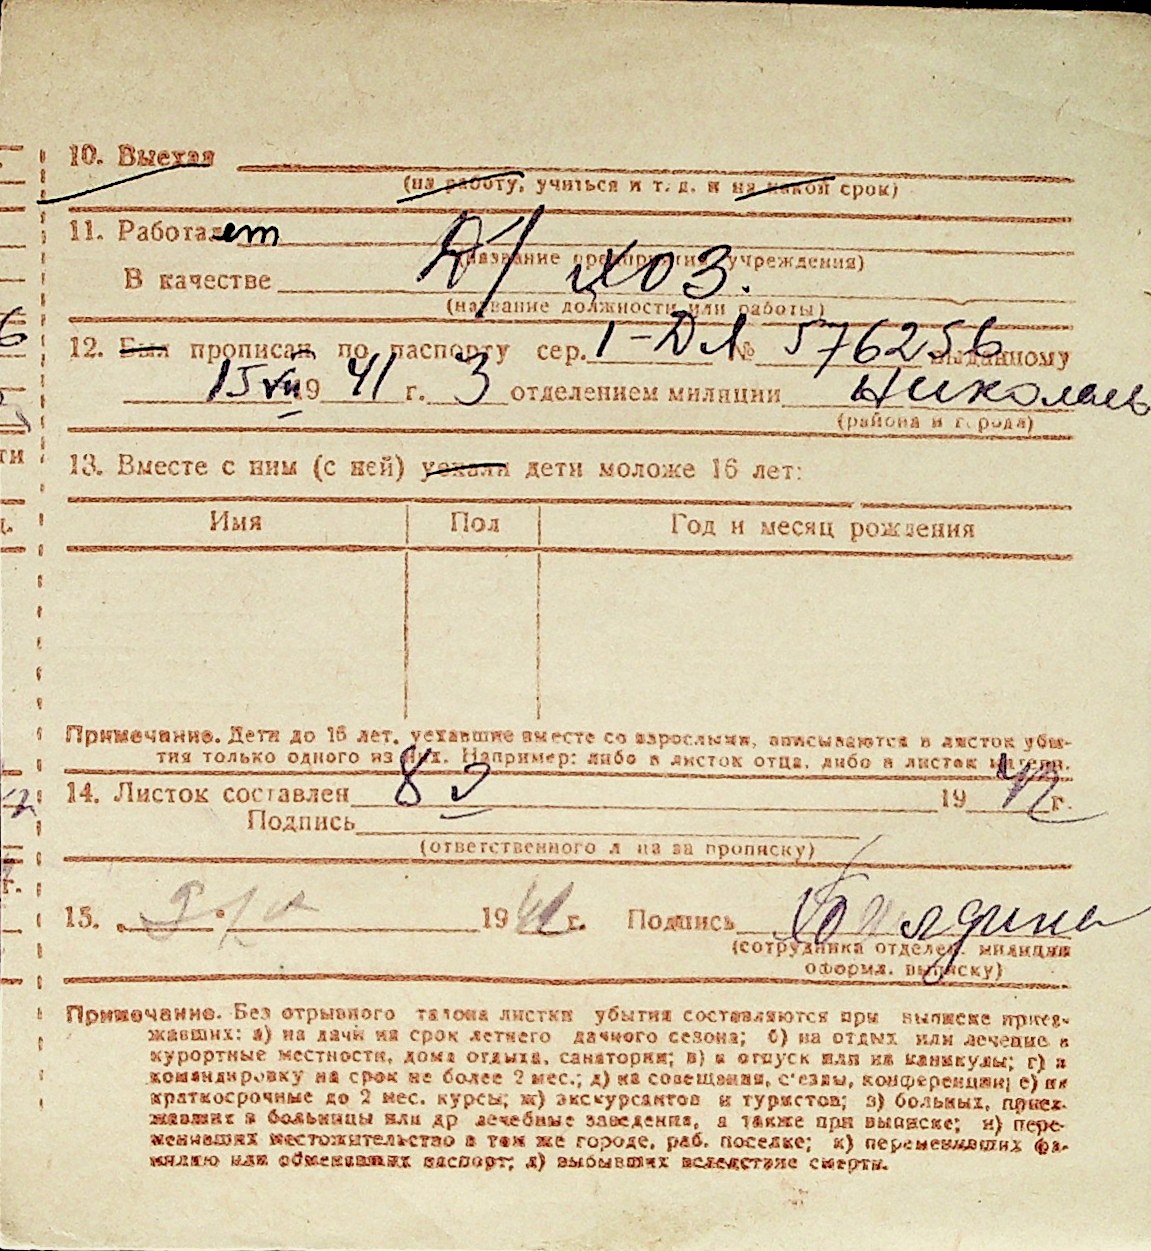 10. Выехал
(на работу, учиться и т. д. и на какой срок)
11. Работает
Д/хоз.
(название предприятия, учреждения)
В качестве
(название должности или работы)
12. Был прописан по паспорту сер. 1-ДЛ № 576256 выданному
15 VII 1941 г. 3 отделением милиции Николаев
(района и города)
13. Вместе с ним (с ней) уехали дети моложе 16 лет:
Имя Пол Год и месяц рождения
Примечание. Дети до 16 лет, уехавшие вместе со взрослыми, вписываются в листок убы-
тия только одного из них. Например: либо в листок отца, либо в листок матери.
14. Листок составлен 8 1942 г.
Подпись
(ответственного лица за прописку)
15. 19 г. Подпись
(сотрудника отделен. милиции
оформл. выписку)
Примечание. Без отрывного талона листки убытия составляются при выписке приез-
жавших: а) на дачи на срок летнего дачного сезона; б) на отдых или лечение в
курортные местности, дома отдыха, санатории; в) в отпуск или на каникулы; г) в
командировку на срок не более 2 мес.; д) на совещания, с'езды, конференции; е) на
краткосрочные до 2 мес. курсы; ж) экскурсантов и туристов; з) больных, приез-
жавших в больницы или др лечебные заведения, а также при выписке; и) пере-
менивших местожительство в том же городе, раб. поселке; к) переменивших фа-
милию или обменявших паспорт; л) выбывших вследствие смерти.